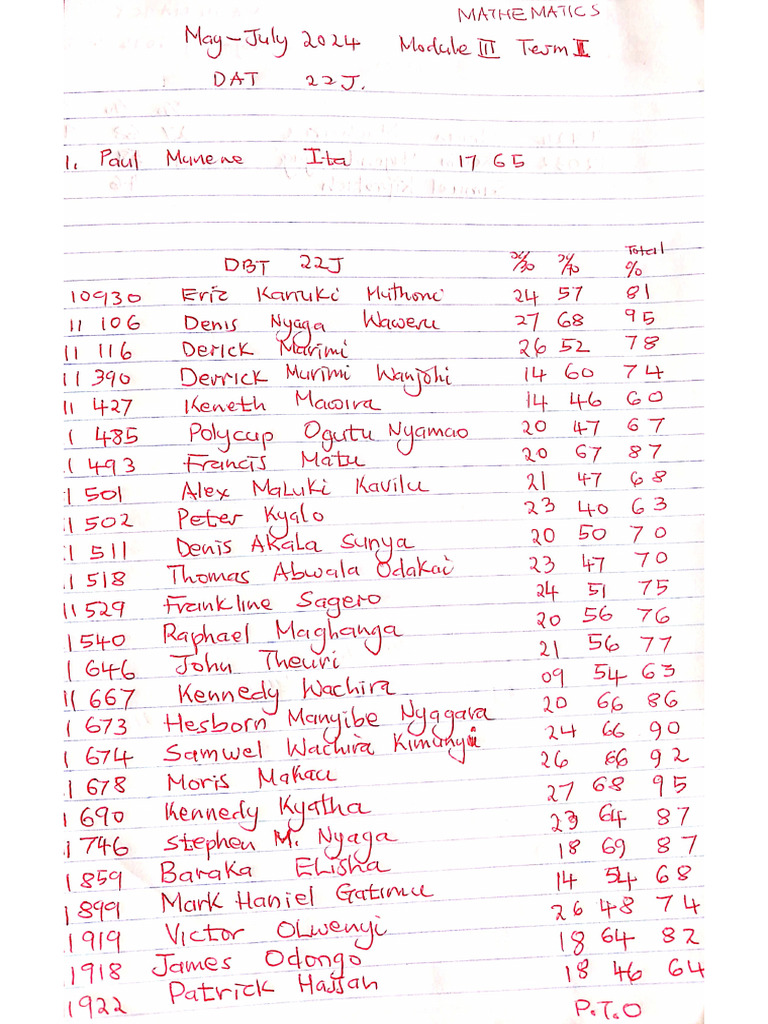 MATHEMATICS
May-July 2024 Module III Term II
DAT 22J.
1. Paul Munene Ita 17 65
DBT 22J x/30 x/70 Total %
10930 Eric Kanuki Muthoni 24 57 81
11 106 Denis Nyaga Waweru 27 68 95
11 116 Derick Marimi 26 52 78
11 390 Derrick Murimi Wanjohi 14 60 74
11 427 Keneth Mawira 14 46 60
1 485 Polycup Ogutu Nyamao 20 47 67
1 493 Francis Matu 20 67 87
1 501 Alex Maluki Kavilu 21 47 68
1 502 Peter Kyalo 23 40 63
1 511 Denis Akala Sunya 20 50 70
1 518 Thomas Abwala Odakai 23 47 70
11 529 Frankline Sagero 24 51 75
1540 Raphael Maghanga 20 56 76
1 646 John Theuri 21 56 77
11 667 Kennedy Wachira 09 54 63
1 673 Hesborn Manyibe Nyagara 20 66 86
1 674 Samwel Wachira Kimunyi 24 66 90
1 678 Moris Makau 26 66 92
1 690 Kennedy Kyatha 27 68 95
1 746 Stephen M. Nyaga 23 64 87
1 859 Baraka Elisha 18 69 87
1 899 Mark Haniel Gatimu 14 54 68
1 1919 Victor Olwenyi 26 48 74
1 1918 James Odongo 18 64 82
1 1922 Patrick Hassan 18 46 64
P.T.O